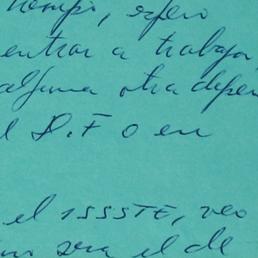 tiempo, espero
entrar a trabajar
alguna otra depen
el D.F o en
el ISSSTE, veo
sea el de